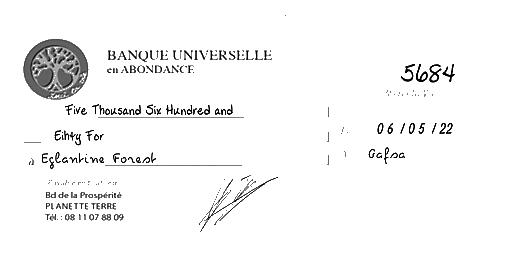 BANQUE UNIVERSELLE
en ABONDANCE
5684
Five Thousand Six Hundred and
06/05/22
Eihty For
Gafsa
à Eglantine Forest
Bd de la Prospérité
PLANETTE TERRE
Tél. : 08 11 07 88 09